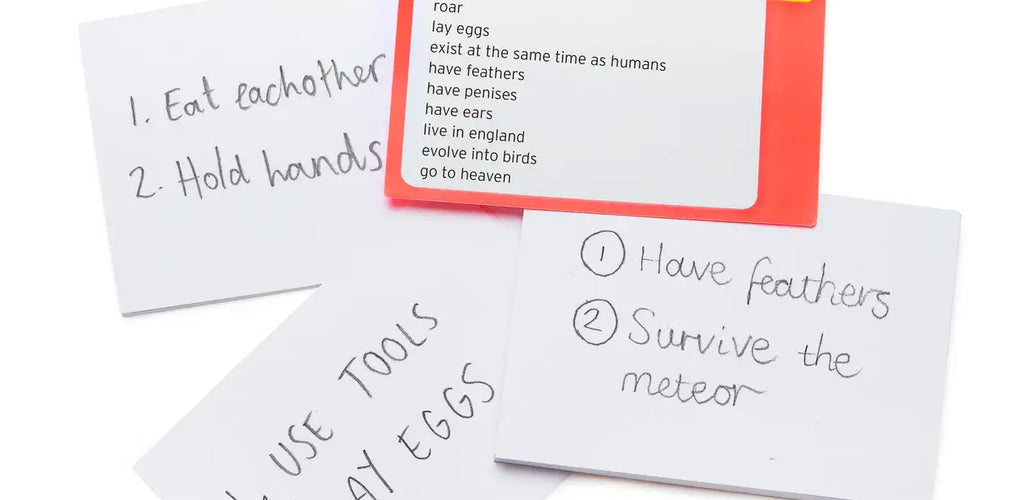 roar
lay eggs
exist at the same time as humans
have feathers
have penises
have ears
live in england
evolve into birds
go to heaven
1. Eat eachother
2. Hold hands
1 Have feathers
2 Survive the
meteor
USE TOOLS
EGGS